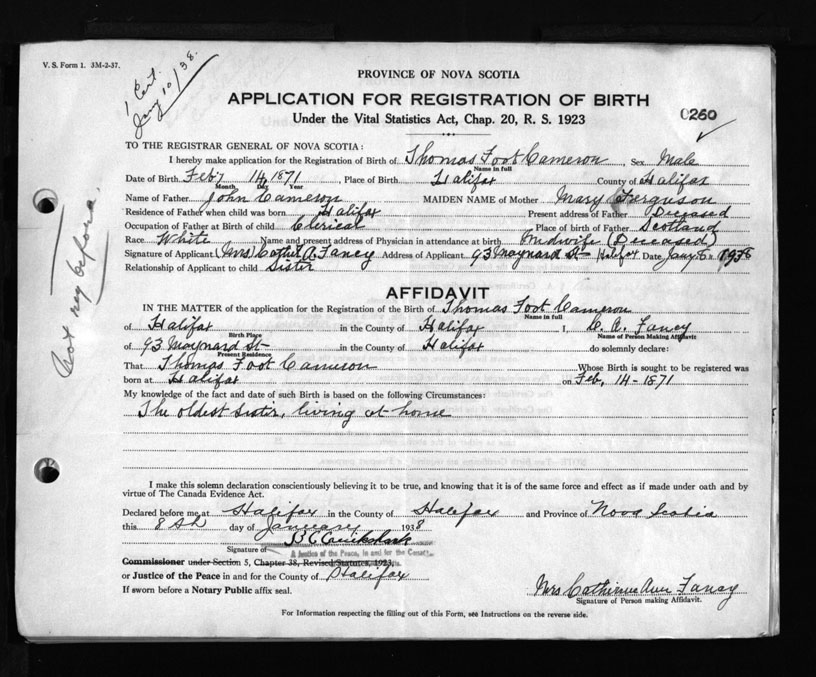 V. S. Form 1. 3M-2-37.
1 Cert.
Jany 10/38.
PROVINCE OF NOVA SCOTIA
APPLICATION FOR REGISTRATION OF BIRTH
Under the Vital Statistics Act, Chap. 20, R. S. 1923
0250
TO THE REGISTRAR GENERAL OF NOVA SCOTIA:
I hereby make application for the Registration of Birth of Thomas Foot Cameron, Sex Male
Name in full
Date of Birth Feb'y 14, 1871 Place of Birth Halifax County of Halifax
Month Day Year
Name of Father John Cameron MAIDEN NAME of Mother Mary Ferguson
Residence of Father when child was born Halifax Present address of Father Deceased
Occupation of Father at Birth of child Clerical Place of Birth of Father Scotland
Race White Name and present address of Physician in attendance at birth Midwife (Deceased)
Signature of Applicant (Mrs) Cathe A. Fancy Address of Applicant 93 Maynard St Halifax Date Jany 8 1938
Relationship of Applicant to child Sister
Not reg before.
AFFIDAVIT
IN THE MATTER of the application for the Registration of the Birth of Thomas Foot Cameron
Name in full
of Halifax in the County of Halifax I, C. A. Fancy
Birth Place Name of Person Making Affidavit
of 93 Maynard St in the County of Halifax do solemnly declare:
Present Residence
That Thomas Foot Cameron Whose Birth is sought to be registered was
born at Halifax on Feb, 14-1871
My knowledge of the fact and date of such Birth is based on the following Circumstances:
The oldest sister, living at home
I make this solemn declaration conscientiously believing it to be true, and knowing that it is of the same force and effect as if made under oath and by
virtue of The Canada Evidence Act.
Declared before me at Halifax in the County of Halifax and Province of Nova Scotia
this 8th day of January 1938
Signature of
A Justice of the Peace, in and for the County
Commissioner under Section 5, Chapter 38, Revised Statutes, 1923,
or Justice of the Peace in and for the County of Halifax
If sworn before a Notary Public affix seal.
Mrs Catherine Ann Fancy
Signature of Person making Affidavit.
For Information respecting the filling out of this Form, see Instructions on the reverse side.